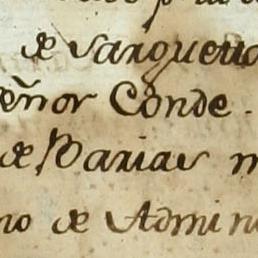 de Sargueta
eñor Conde.
de Varias m
no de Admin